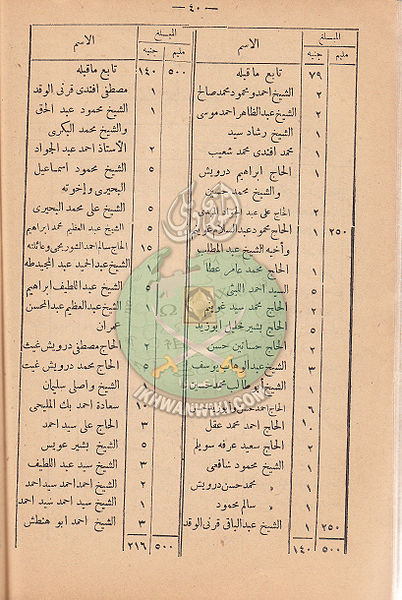 — ٤٠ —
الاسم المبلغ
جنيه مليم
تابع ما قبله ٧٩
الشيخ احمد ومحمود محمد صالح ٢
الشيخ عبد الظاهر احمد موسى ٢
الشيخ رشاد سيد ١
محمد افندى محمد شعيب ١
الحاج ابراهيم درويش ١
والشيخ محمد حسين
الحاج على عبد الجواد ٢
الحاج محمود عبد السلام غريب ١ ٢٥٠
وأخيه الشيخ عبد المطلب
الحاج محمد عامر عطا ١
السيد احمد الليثى ٥
الحاج محمد سيد ١
الحاج بشير خليل ابوزيد ٥
الحاج حسانين حسن ٢
الشيخ عبد الوهاب يوسف ٣
الشيخ أبو طالب محمد ١
الحاج احمد حسن ٦
الحاج احمد محمد عقل ١٠
الحاج سعيد عرفه سويلم ٢
الشيخ محمود شافعى ١
» محمد حسن درويش ١
» سالم محمود ١
الشيخ عبد الباقى قرنى الوقد ١ ٢٥٠
١٤٠ ٥٠٠
الاسم المبلغ
جنيه مليم
تابع ما قبله ١٤٠ ٥٠٠
مصطفى افندى قرنى الوقد ١
الشيخ محمود عبد الحق ١
والشيخ محمد البكرى
الأستاذ احمد عبد الجواد ٢
الشيخ محمود اسماعيل ٥
البحيرى وإخوته
الشيخ على محمد البحيرى ٥
الشيخ عبد العظيم محمد ابراهيم ٥
الحاج سالم احمد الشوربجى وعائلته ١٥
الشيخ عبد الحميد عبد المجيد طه ١
الشيخ عبد اللطيف ابراهيم ٥
الشيخ عبد العظيم عبد المحسن ١
عمران
الحاج مصطفى درويش غيث ٢
الحاج محمد درويش غيث ٥
الشيخ واصلى سليمان ١
سعادة احمد بك المليجى ١٠
الحاج على سيد احمد ٣
الشيخ بشير عويس ٥
الشيخ سيد عبد اللطيف ٣
الشيخ احمد احمد سيد احمد ٢
الشيخ احمد سيد احمد ١
الشيخ احمد ابو هنطش ٣
٢١٦ ٥٠٠
IKHWANWIKI.COM